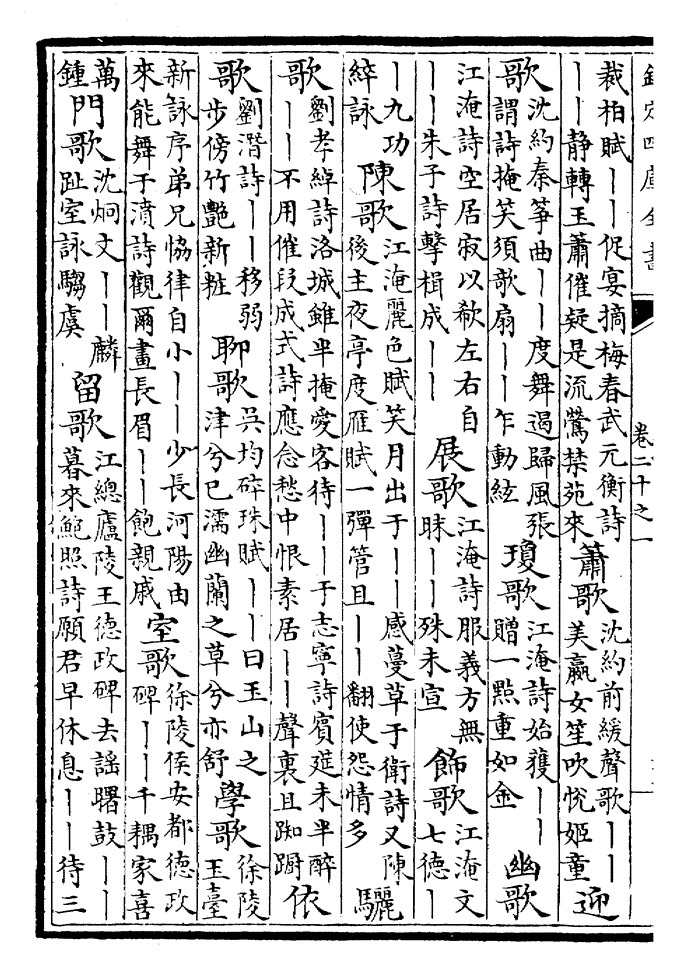 欽定四庫全書 卷二十之一
裁柏賦丨丨促宴摘梅春武元衡詩丨丨静轉玉蕭催疑是流鶯禁苑來蕭歌沈約前緩聲歌丨丨美嬴女笙吹悦姬童迎
歌沈約秦筝曲丨丨度舞遏歸風張謂詩掩笑須歌扇丨丨乍動絃瓊歌江淹詩始獲丨丨贈一點重如金幽歌
江淹詩空居寂以欷左右自丨丨朱子詩擊楫成丨丨展歌江淹詩服義方無昧丨丨殊未宣飾歌江淹文七德丨
丨九功綷詠陳歌江淹麗色賦笑月出于丨丨感蔓草于衛詩又陳後主夜亭度雁賦一彈管且丨丨翻使怨情多驪
歌劉孝綽詩洛城雖半掩愛客待丨丨于志寧詩賓筵未半醉丨丨不用催段成式詩應念愁中恨素居丨丨聲裏且踟蹰依
歌劉潛詩丨丨移弱步傍竹艷新粧聊歌吳均碎珠賦丨丨曰玉山之津兮已濡幽蘭之草兮亦舒學歌徐陵玉臺
新詠序弟兄協律自小丨丨少長河陽由來能舞于濆詩觀爾畫長眉丨丨飽親戚室歌徐陵侯安都德政碑丨丨千耦家喜
萬鍾門歌沈炯文丨丨麟趾室詠騶虞留歌江總廬陵王德政碑去謡曙鼓丨丨暮來鮑照詩願君早休息丨丨待三